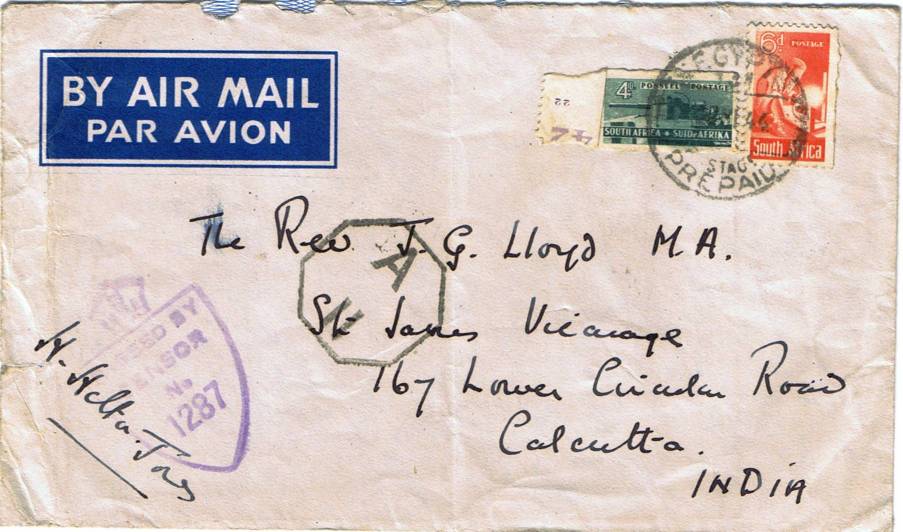 BY AIR MAIL
PAR AVION
4D POSSEËL POSTAGE
SOUTH AFRICA SUID-AFRIKA
22
6d POSTAGE
South Africa
EGYPT
PREPAID
The Rev. J. G. Lloyd M.A.
St James Vicarage
167 Lower Circular Road
Calcutta.
INDIA
A
PASSED BY
CENSOR
No
1287